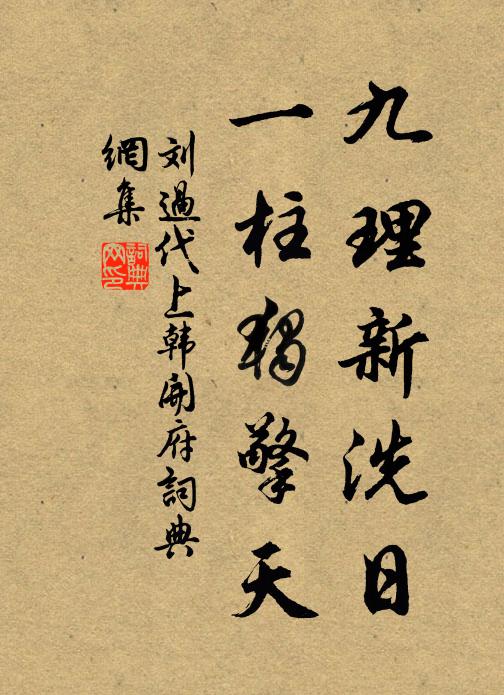 九理新洗日
一柱獨擎天
刘過代上韩開府詞典
網集
詞典網印